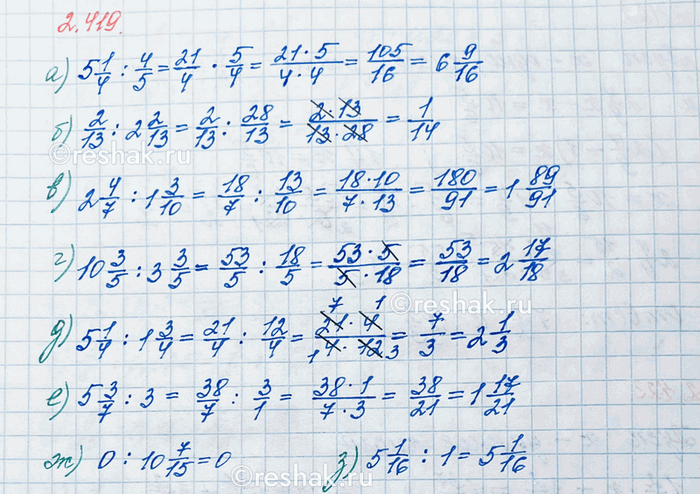 2.419.
а) 5 1/4 : 4/5 = 21/4 · 5/4 = 21·5/4·4 = 105/16 = 6 9/16
б) 2/13 : 2 2/13 = 2/13 : 28/13 = 2·13/13·28 = 1/14
© reshak.ru
в) 2 4/7 : 1 3/10 = 18/7 : 13/10 = 18·10/7·13 = 180/91 = 1 89/91
г) 10 3/5 : 3 3/5 = 53/5 : 18/5 = 53·5/5·18 = 53/18 = 2 17/18
© reshak.ru
д) 5 1/4 : 1 3/4 = 21/4 : 12/4 = 7 1 21·4/4·12 1 3 = 7/3 = 2 1/3
е) 5 3/7 : 3 = 38/7 : 3/1 = 38·1/7·3 = 38/21 = 1 17/21
ж) 0 : 10 7/15 = 0 з) 5 1/16 : 1 = 5 1/16
© reshak.ru